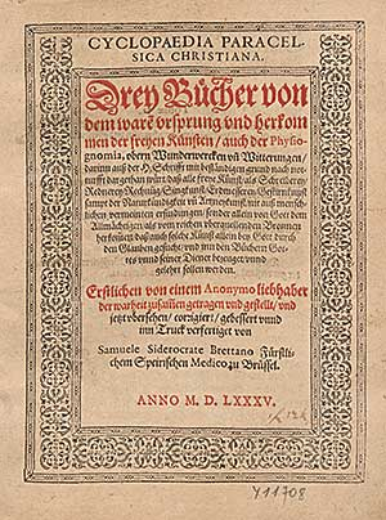 CYCLOPAEDIA PARACEL-
SICA CHRISTIANA.
Drey Bücher von
dem warē vrsprung vnd herkom
men der freyen Künsten / auch der Physio-
gnomia, obern Wunderwercken vñ Witterungen /
darinn auß der H. Schrifft mit beständigen grund nach not-
turfft dargethan würt, daß alle freye Künst, als Schreiberey /
Rednerey Rechnũg, Singkunst, Erdmesserey, Gestirnkunst
sampt der Naturkündigkeit vñ Artzneykunst, nit auß mensch-
lichen vermeinten erfindungen / sonder allein von Gott dem
Allmächtigen, als vom reichen vberquellenden Bronnen
herkomen, daß auch solche Künst allein bey Gott durch
den Glauben gesucht / vnd inn den Büchern Got-
tes vnnd seiner Diener bezeuget vnnd
gelehrt sollen werden.
Erstlichen von einem Anonymo liebhaber
der warheit zusamen getragen vnd gestellt / vnd
jetzt vbersehen / corrigiert / gebessert vnnd
inn Truck verfertiget von
Samuele Siderocrate Brettano Fürstli-
chem Speirischen Medico zu Brüssel.
ANNO M. D. LXXXV.
Y11708